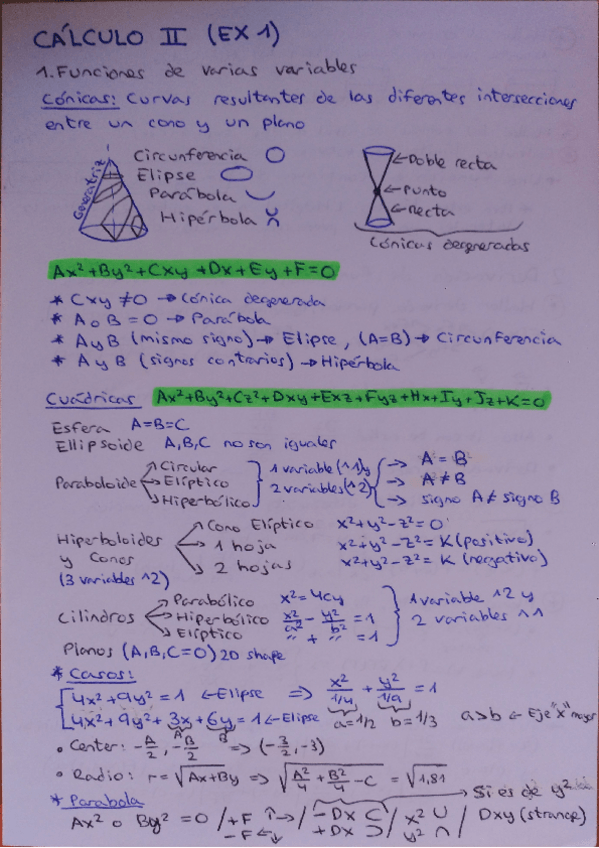 CÁLCULO II (EX 1)
1. Funciones de varias variables
Cónicas: Curvas resultantes de las diferentes intersecciones
entre un cono y un plano
Generatriz
Circunferencia
Elipse
Parábola
Hipérbola
Doble recta
Punto
recta
Cónicas degeneradas
Ax²+By²+Cxy+Dx+Ey+F=0
* Cxy ≠0 → Cónica degenerada
* A o B = 0 → Parábola
* A y B (mismo signo) → Elipse, (A=B) → Circunferencia
* A y B (signos contrarios) → Hipérbola
Cuádricas Ax²+By²+Cz²+Dxy+Exz+Fyz+Hx+Iy+Jz+K=0
Esfera A=B=C
Ellipsoide A,B,C no son iguales
Paraboloide
Circular
Elíptico
Hiperbólico
1 variable (^1) y
2 variables (^2)
→ A = B
→ A ≠ B
→ signo A ≠ signo B
Hiperboloides
y Conos
(3 variables ^2)
Cono Elíptico x²+y²-z²=0
1 hoja x²+y²-z²= K (positivo)
2 hojas x²+y²-z²= K (negativo)
Cilindros
Parabólico x²=4cy
Hiperbólico x²/a² - y²/b² = 1
Elíptico " + " = 1
1 variable ^2 y
2 variables ^1
Planos (A,B,C=0) 2D shape
* Casos:
4x²+9y²=1 ← Elipse ⇒ x²/1/4 + y²/1/9 = 1
4x²+9y²+3x+6y=1 ← Elipse a=1/2 b=1/3 a>b ← Eje "x" mayor
A B
• Center: -A/2, -B/2 ⇒ (-3/2, -3)
• Radio: r=√Ax+By ⇒ √A²/4+B²/4-C = √1,81
* Parabola
Si es de y²
Ax² o By² = 0 / +F ↑→ / -Dx ⊂ / x² ∪ / Dxy (strange)
-F ←↓ +Dx ⊃ y² ∩